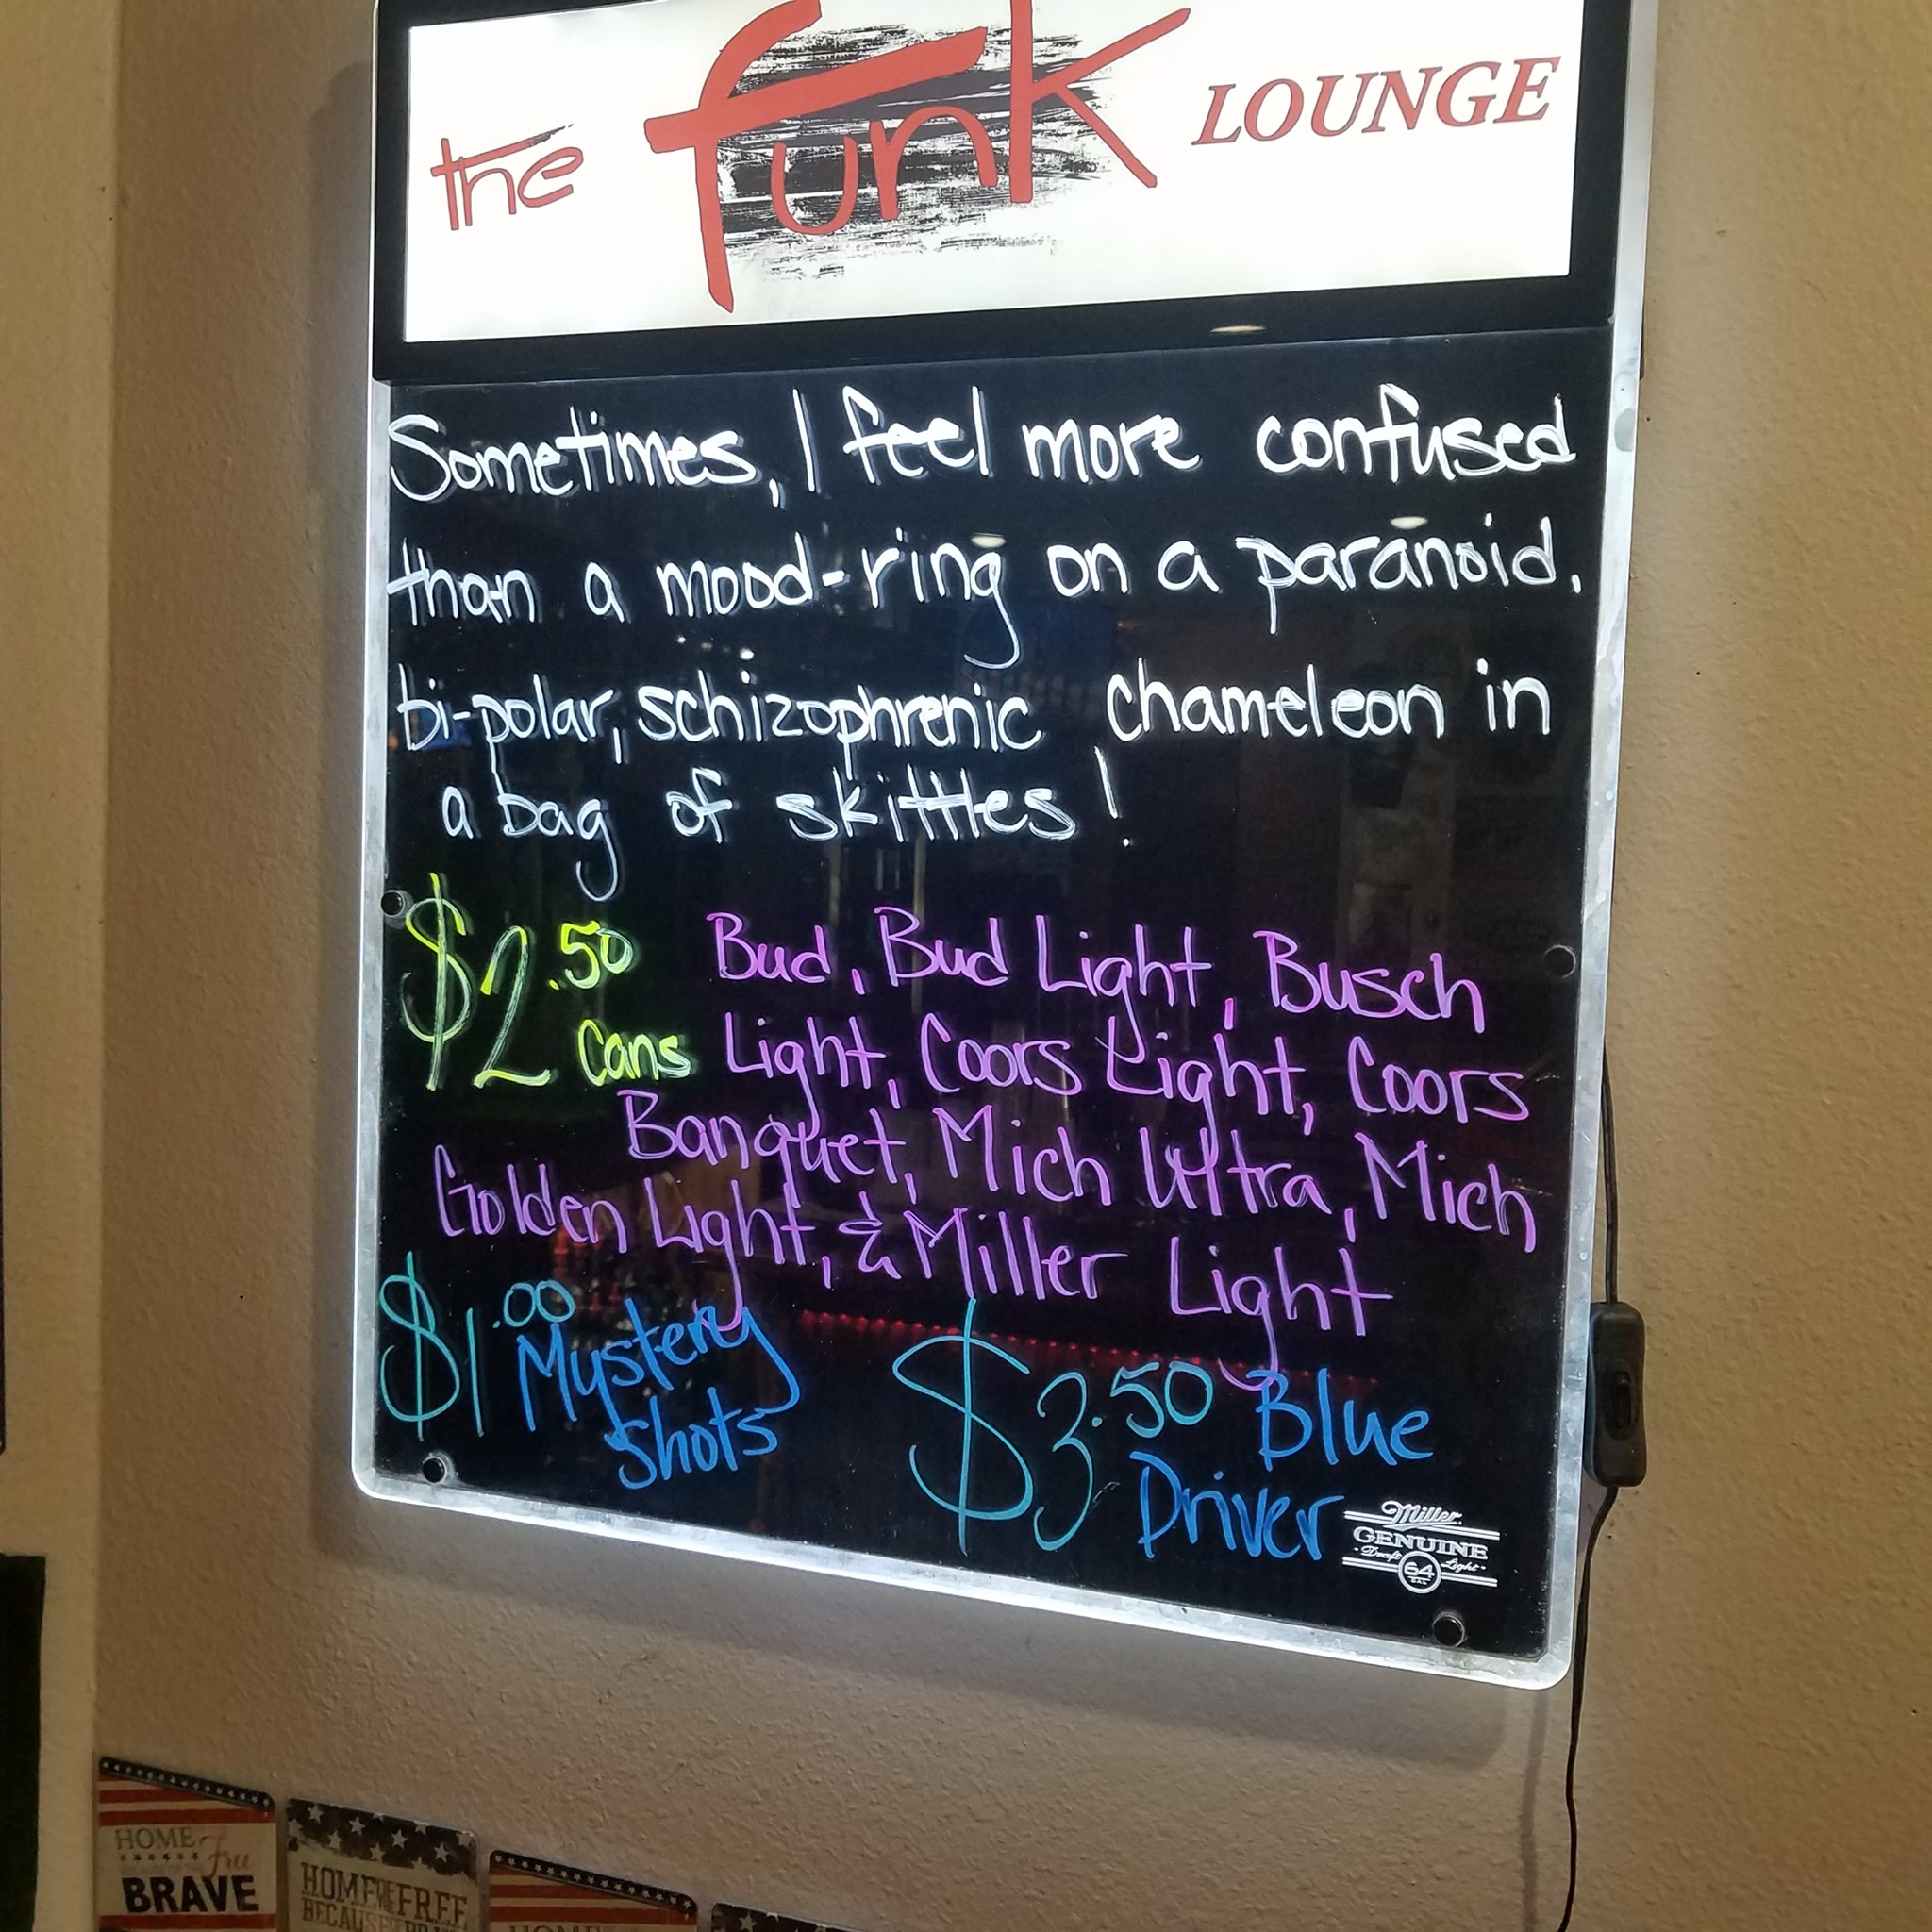 the funk LOUNGE
Sometimes, I feel more confused
than a mood-ring on a paranoid,
bi-polar, schizophrenic chameleon in
a bag of skittles!
$2.50 Bud, Bud Light, Busch
Cans Light, Coors Light, Coors
Banquet, Mich Ultra, Mich
Golden Light, & Miller Light
$1.00 Mystery
Shots
$3.50 Blue
Driver
Miller
GENUINE
Draft Light
64
CAL
HOME
Free
BRAVE
HOME OF THE FREE
BECAUSE
HOME